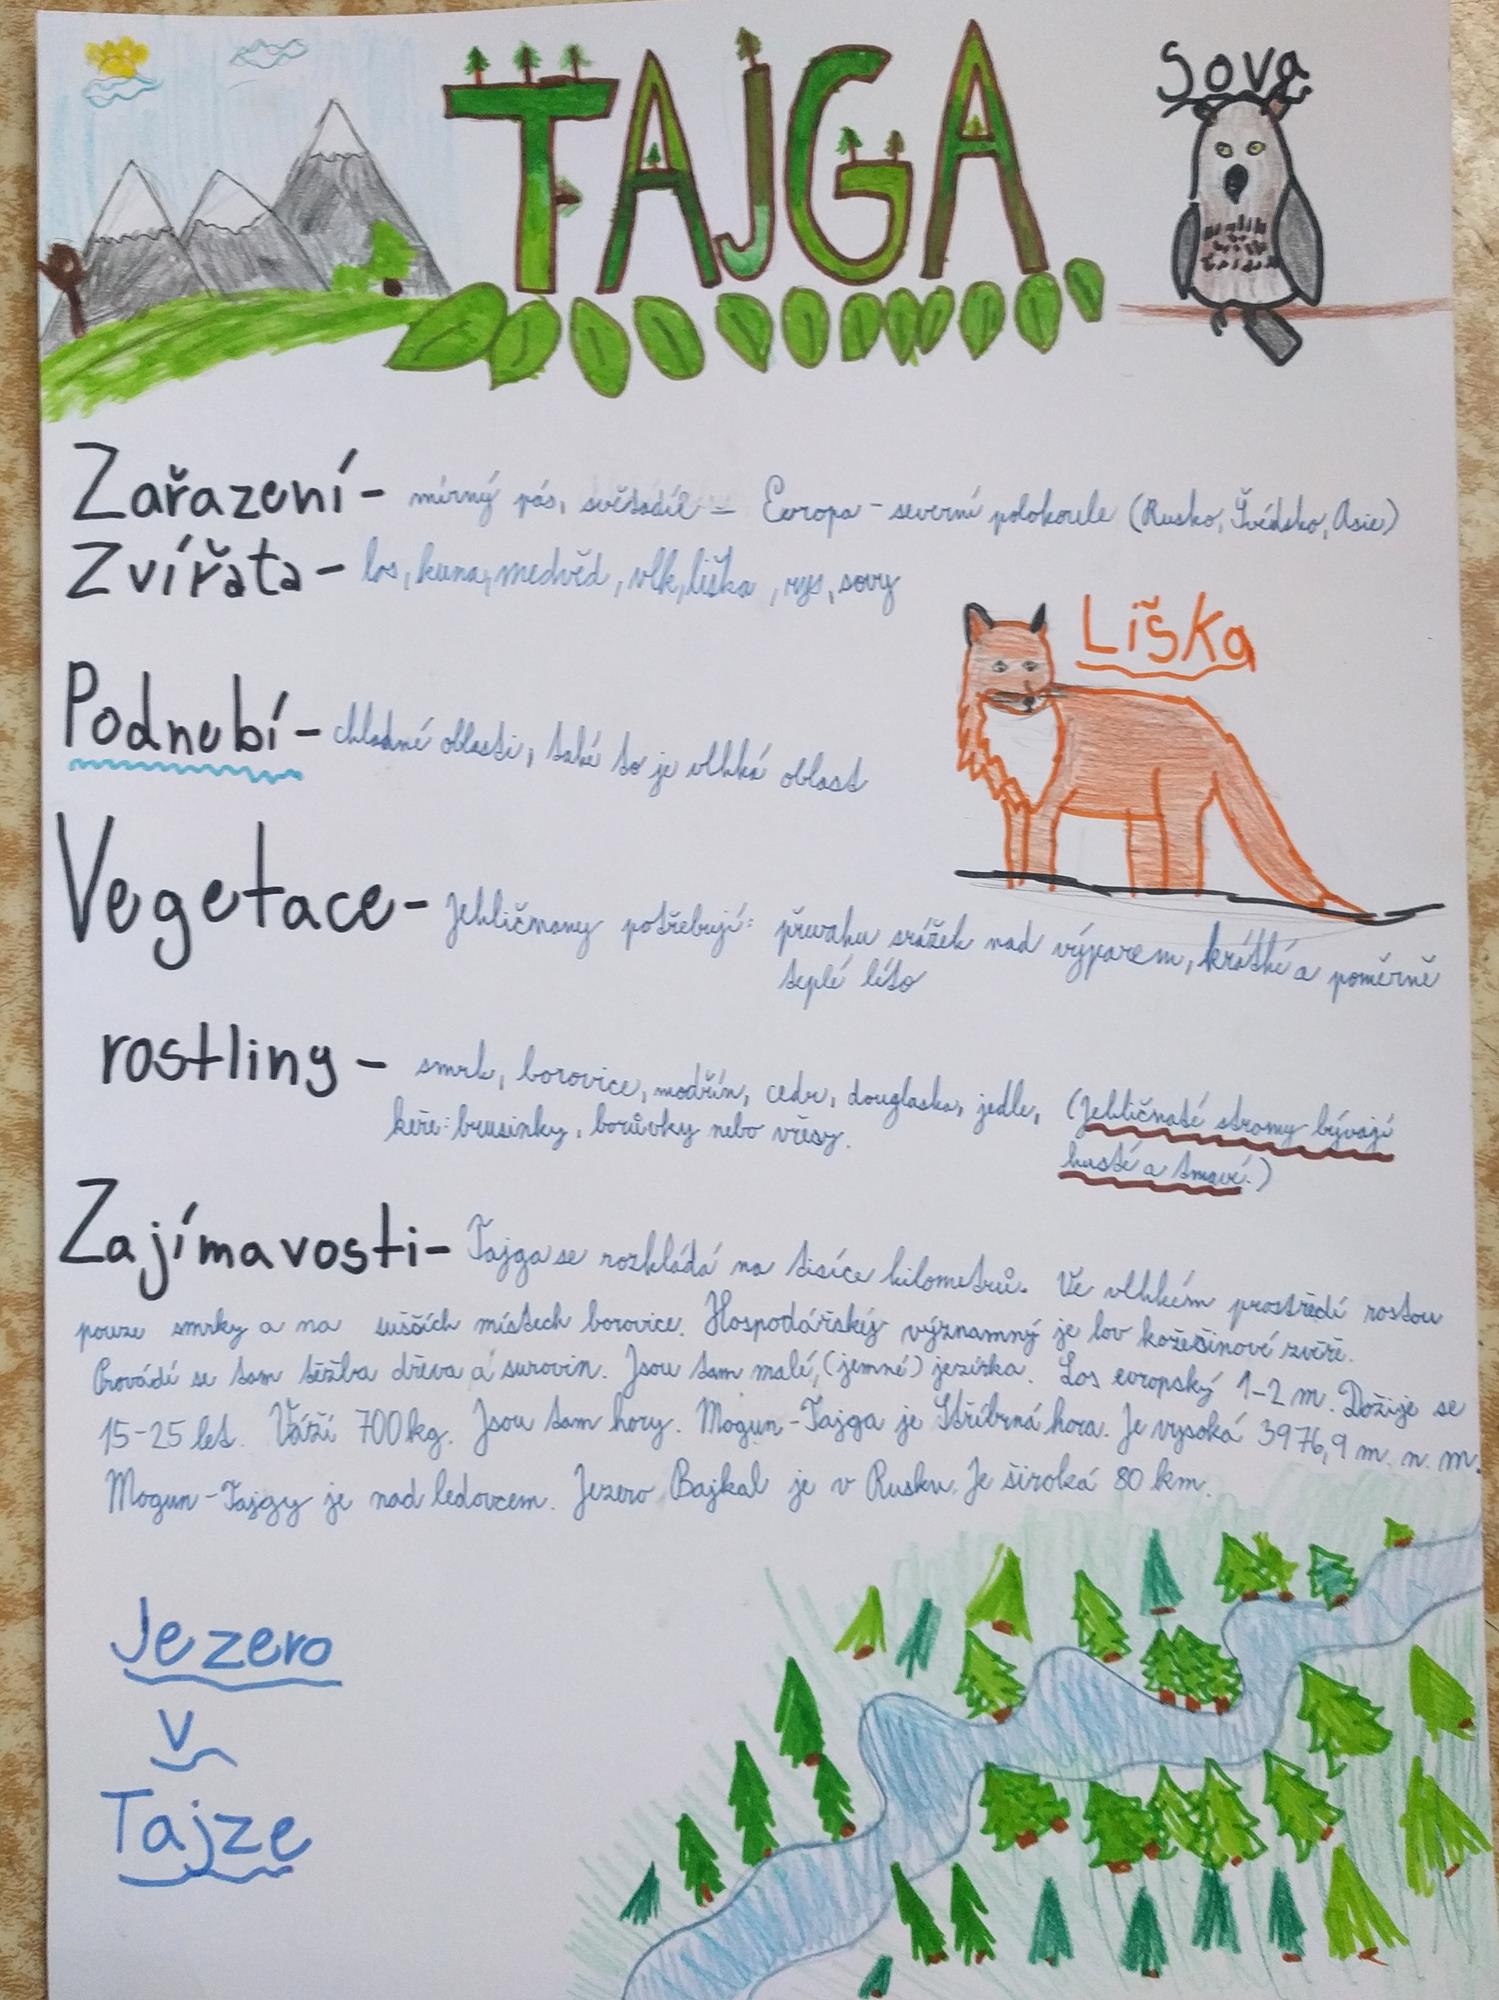 TAJGA
Sova
Zařazení - mírný pás, světadíl - Evropa - severní polokoule (Rusko, Švédsko, Asie)
Zvířata - los, kuna, medvěd, vlk, liška, rys, sovy
Liška
Podnebí - chladné oblasti, také to je vlhká oblast
Vegetace - Jehličnany potřebují: převahu srážek nad výparem, krátké a poměrně
teplé léto
rostliny - smrk, borovice, modřín, cedr, douglaska, jedle, (Jehličnaté stromy bývají
keře: brusinky, borůvky nebo vřesy. husté a tmavé.)
Zajímavosti - Tajga se rozkládá na tisíce kilometrů. Ve vlhkém prostředí rostou
pouze smrky a na sušších místech borovice. Hospodářský významný je lov kožešinové zvěře.
Provádí se tam těžba dřeva a surovin. Jsou tam malé, (jemné) jezírka. Los evropský 1-2 m. Dožije se
15-25 let. Váží 700 kg. Jsou tam hory. Mogun-Tajga je Stříbrná hora. Je vysoká 3976,9 m. n. m.
Mogun-Tajgy je nad ledovcem. Jezero Bajkal je v Rusku. Je široká 80 km.
Jezero
v
Tajze